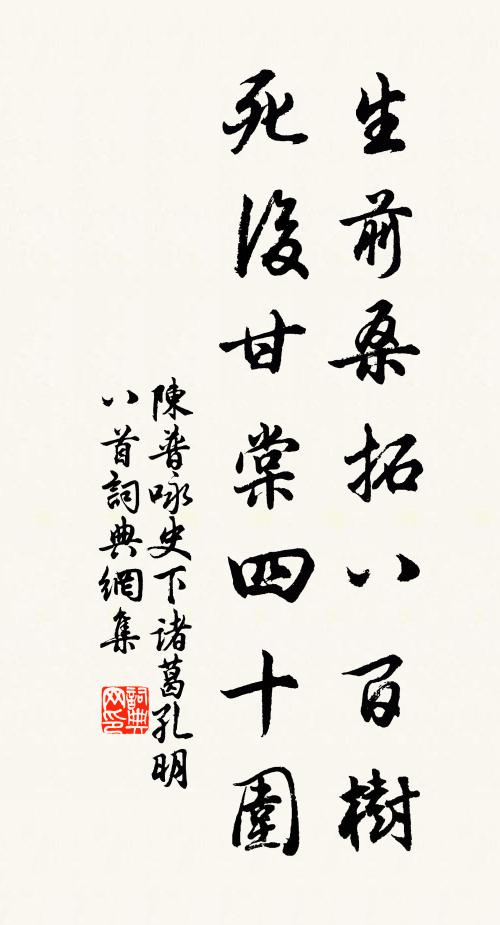 生前桑拓八百樹
死後甘棠四十圍
陳普咏史下諸葛孔明
八首詞典網集
詞典網印